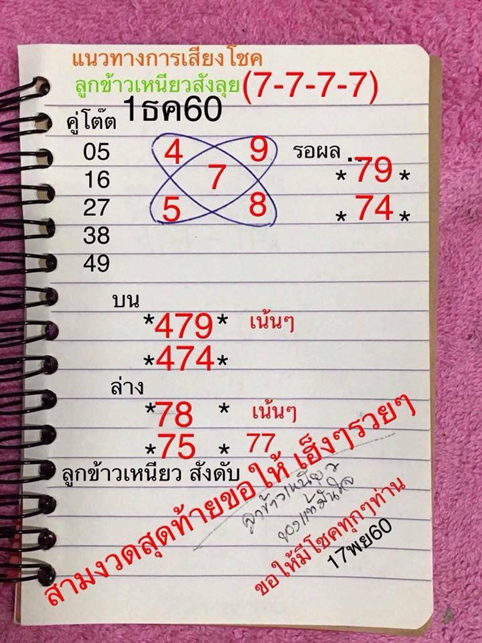 แนวทางการเสี่ยงโชค
ลูกข้าวเหนียวสังลุย(7-7-7-7)
คู่โต๊ต 1ธค60
05
16
27
38
49
4 9
7
5 8
รอผล ..
*79*
*74*
บน
*479* เน้นๆ
*474*
ล่าง
*78 * เน้นๆ
*75 * 77
ลูกข้าวเหนียว สังดับ
สามงวดสุดท้ายขอให้ เฮ็งๆรวยๆ
ลูกข้าวเหนียว
ของแท้มั่นใจ
ขอให้มีโชคทุกๆท่าน
17พย60